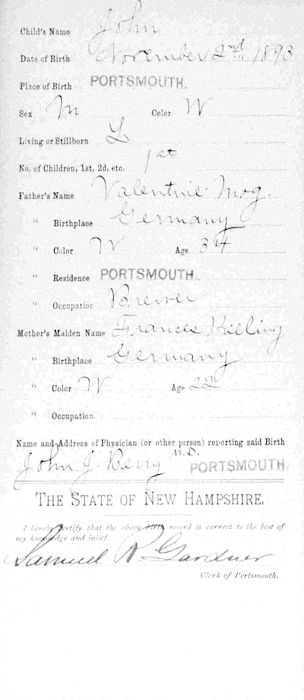 Child's Name John
Date of Birth November 2nd 1893
Place of Birth PORTSMOUTH.
Sex M Color W
Living or Stillborn L
No. of Children, 1st. 2d. etc. 1st
Father's Name Valentine Mog.
" Birthplace Germany
" Color W Age 34
" Residence PORTSMOUTH.
" Occupation Brewer
Mother's Maiden Name Frances Killing
" Birthplace Germany
" Color W Age 22
" Occupation
Name and Address of Physician (or other person) reporting said Birth
John J. Berry M.D. PORTSMOUTH.
THE STATE OF NEW HAMPSHIRE.
I hereby certify that the above birth record is correct to the best of
my knowledge and belief.
Samuel R. Gardner
Clerk of Portsmouth.